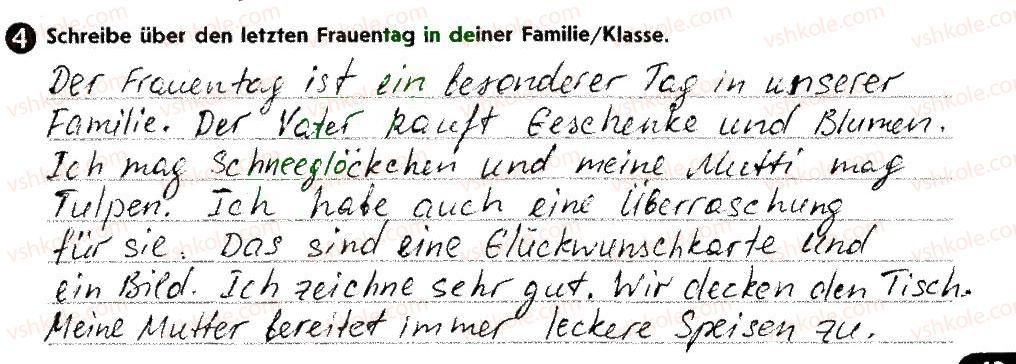 4 Schreibe über den letzten Frauentag in deiner Familie/Klasse.
Der Frauentag ist ein besonderer Tag in unserer
Familie. Der Vater kauft Geschenke und Blumen.
Ich mag Schneeglöckchen und meine Mutti mag
Tulpen. Ich habe auch eine Überraschung
für sie. Das sind eine Glückwunschkarte und
ein Bild. Ich zeichne sehr gut. Wir decken den Tisch.
Meine Mutter bereitet immer leckere Speisen zu.